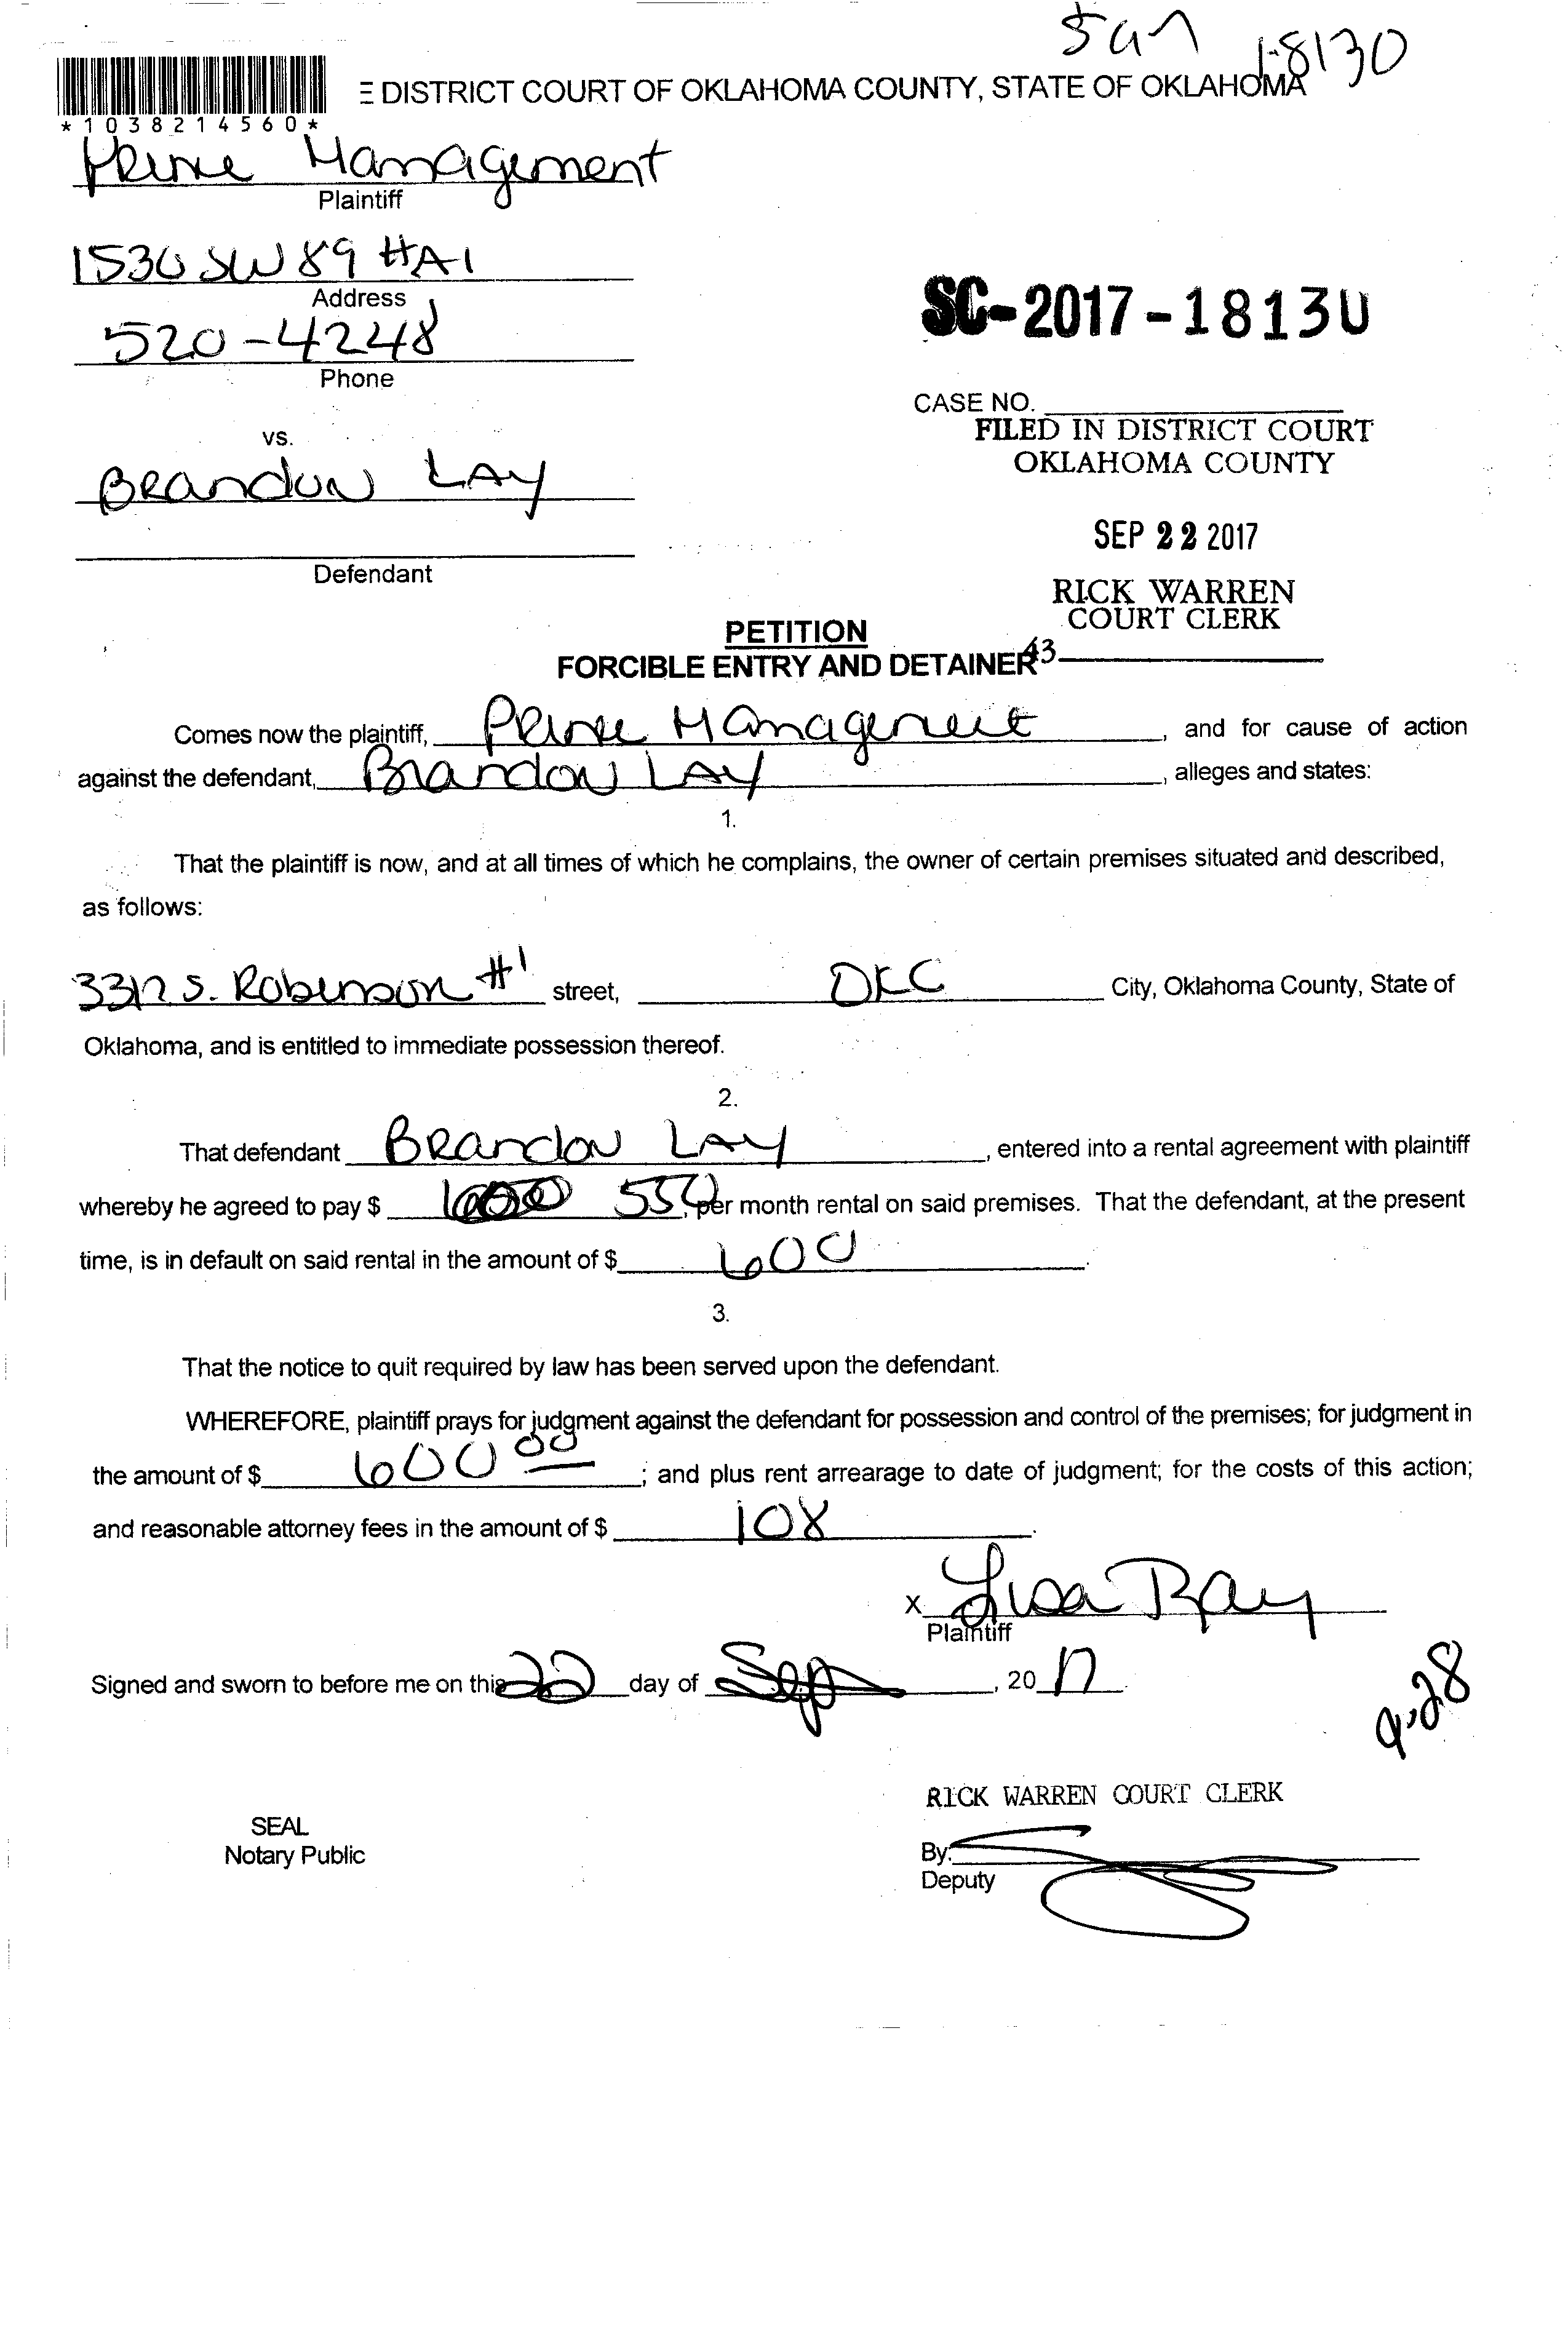 San 18130
E DISTRICT COURT OF OKLAHOMA COUNTY, STATE OF OKLAHOMA
*1038214560*
Prime Management
Plaintiff
1530 SW 89 #A1
Address
520-4248
Phone
SC-2017-18130
CASE NO.
FILED IN DISTRICT COURT
OKLAHOMA COUNTY
vs.
Brandon Lay
SEP 22 2017
Defendant
RICK WARREN
COURT CLERK
43
PETITION
FORCIBLE ENTRY AND DETAINER
Comes now the plaintiff, Prime Management, and for cause of action
against the defendant, Brandon Lay, alleges and states:
1.
That the plaintiff is now, and at all times of which he complains, the owner of certain premises situated and described,
as follows:
3312 S. Robinson #1 street, OKC City, Oklahoma County, State of
Oklahoma, and is entitled to immediate possession thereof.
2.
That defendant Brandon Lay, entered into a rental agreement with plaintiff
whereby he agreed to pay $ 550, per month rental on said premises. That the defendant, at the present
time, is in default on said rental in the amount of $ 600.
3.
That the notice to quit required by law has been served upon the defendant.
WHEREFORE, plaintiff prays for judgment against the defendant for possession and control of the premises; for judgment in
the amount of $ 600 00; and plus rent arrearage to date of judgment; for the costs of this action;
and reasonable attorney fees in the amount of $ 108.
X Lisa Bay
Plaintiff
Signed and sworn to before me on this 22 day of Sep, 20 17.
9-28
RICK WARREN COURT CLERK
SEAL
Notary Public
By:
Deputy